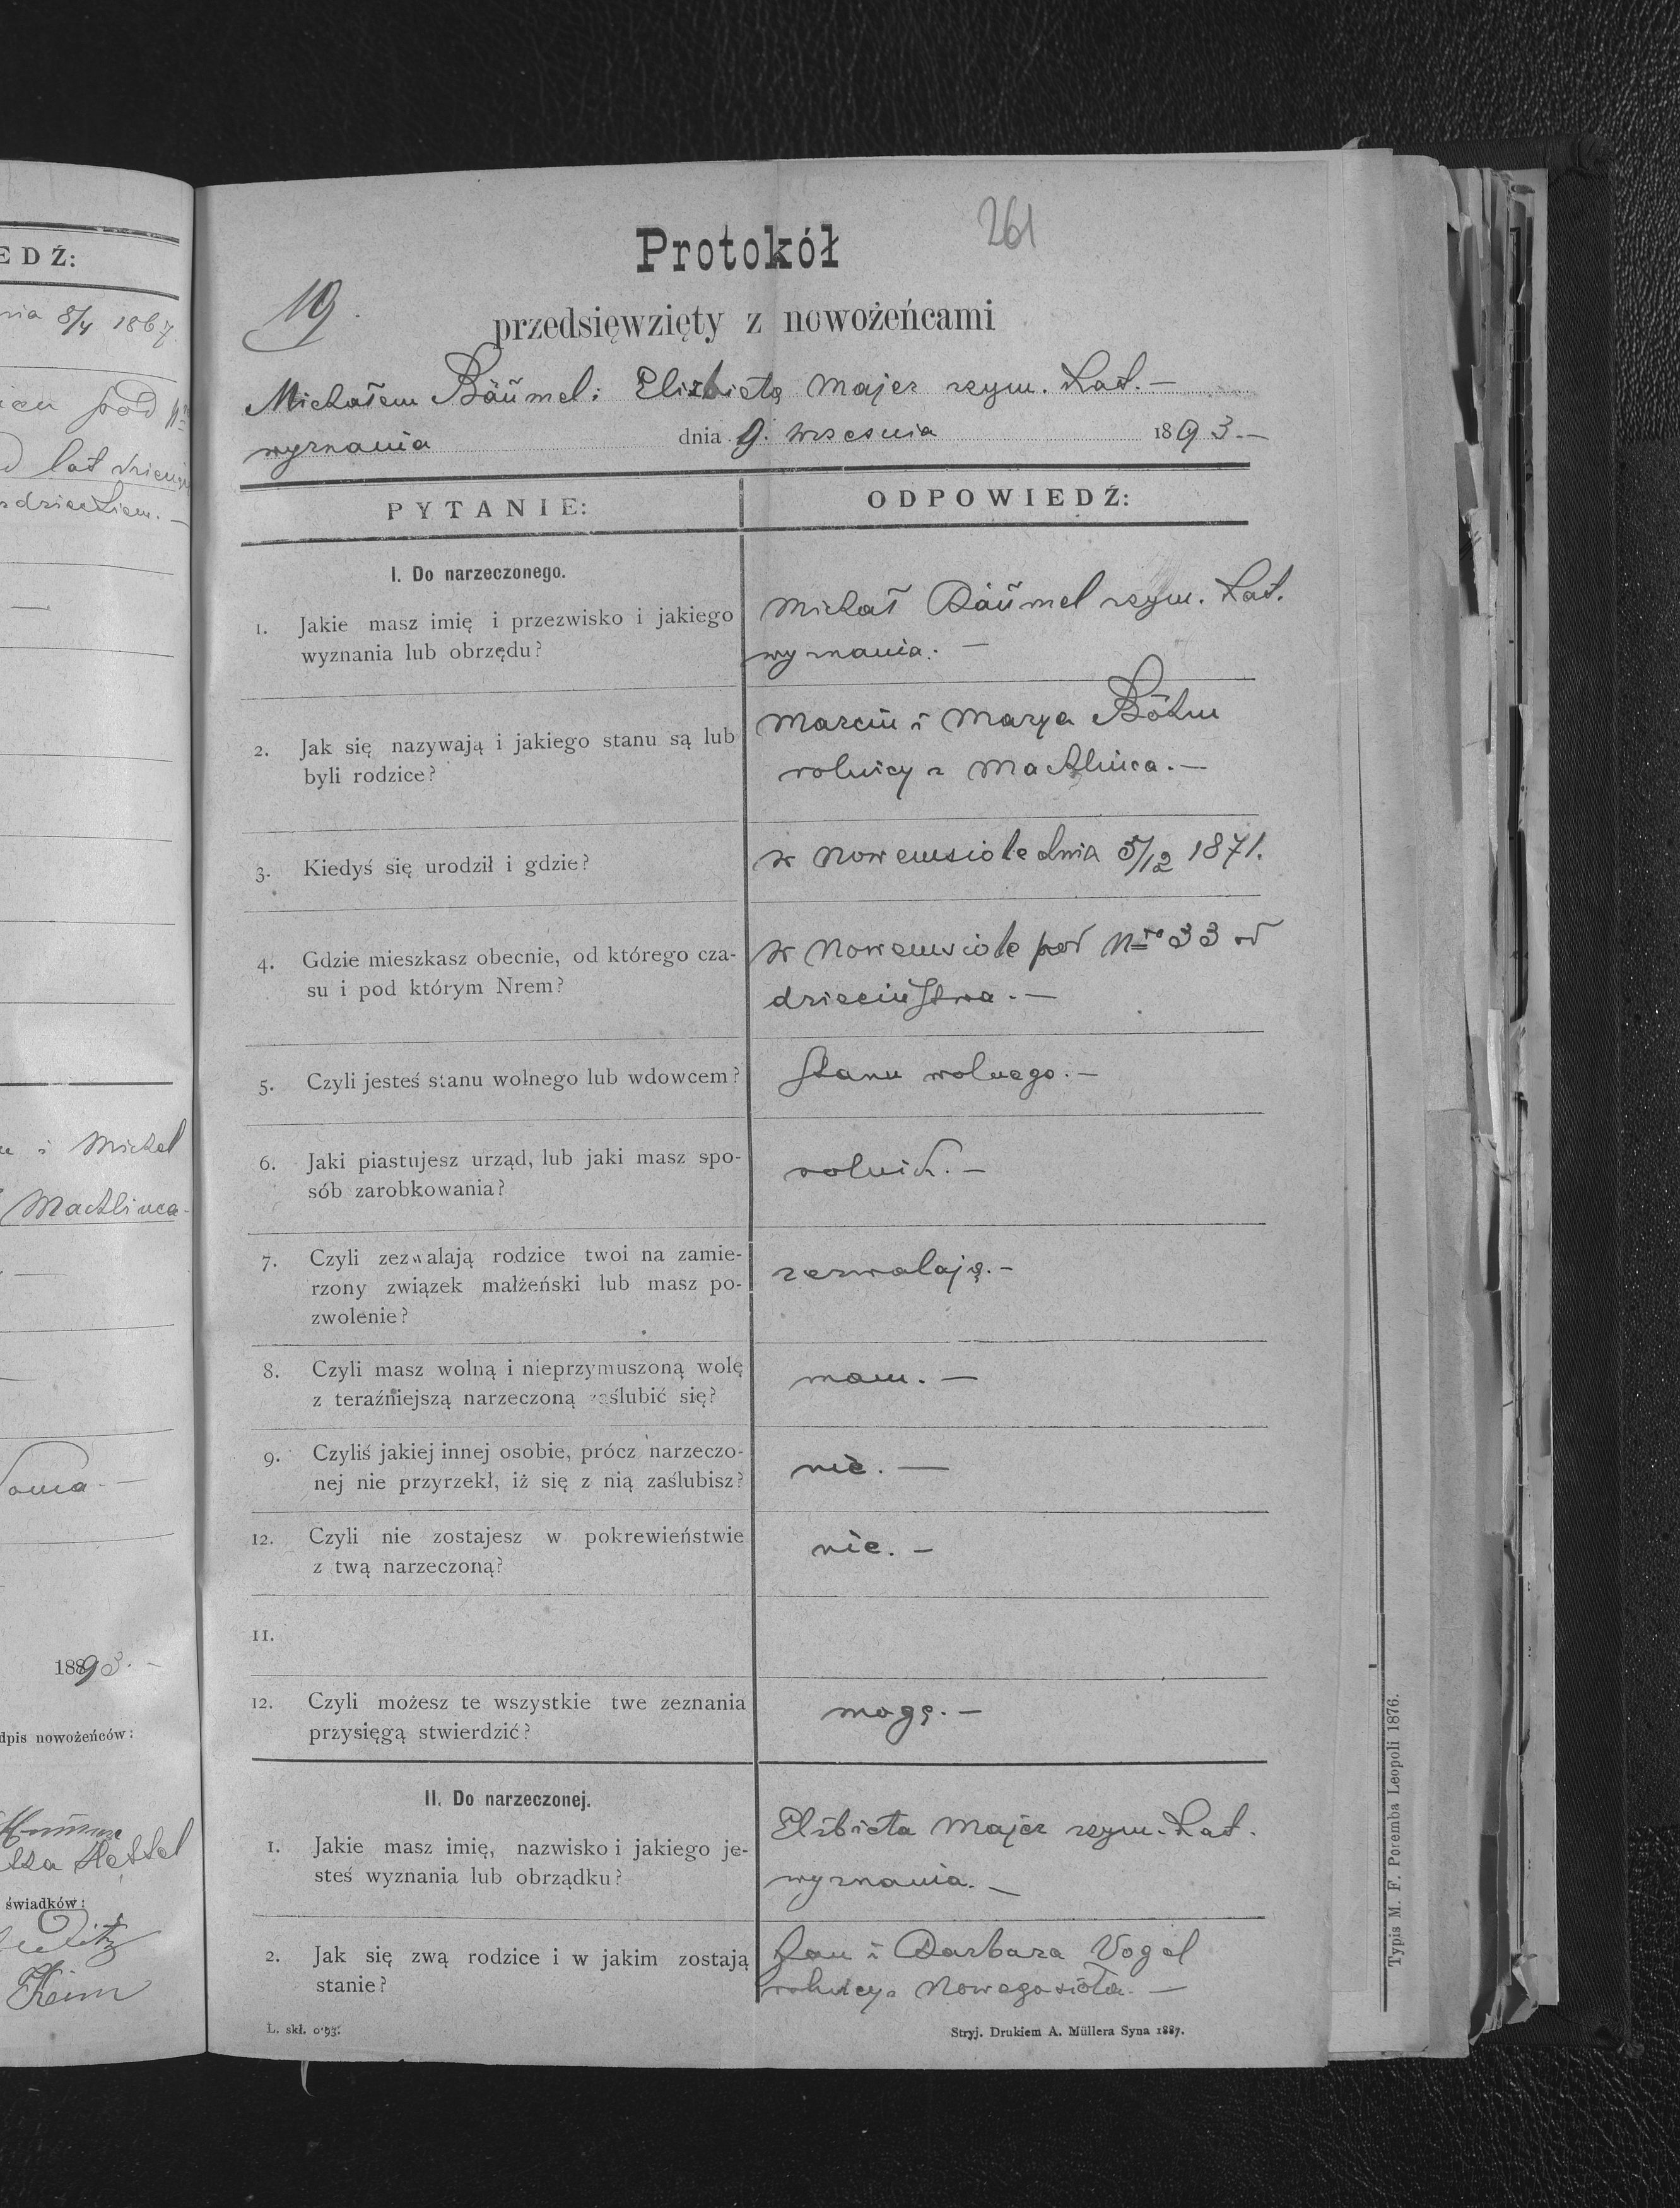 EDŹ:
nia 8/4 1867
pod
lat
1893. -
dpis nowożeńców:
Hettel
świadków:
Keim
i Michel
Machlinca -
261
Protokół
19.
przedsięwzięty z nowożeńcami
Michałem Bäumel i Elżbietą Majer rzym. kat. -
wyznania dnia 9. września 1893. -
PYTANIE: ODPOWIEDŹ:
I. Do narzeczonego.
1. Jakie masz imię i przezwisko i jakiego
wyznania lub obrzędu?
Michał Bäumel rzym. kat.
wyznania. -
2. Jak się nazywają i jakiego stanu są lub
byli rodzice?
Marcin i Marya Böhm
rolnicy z Machlinca. -
3. Kiedyś się urodził i gdzie?
w Nowemsiole dnia 5/12 1871.
4. Gdzie mieszkasz obecnie, od którego cza-
su i pod którym Nrem?
w Nowemsiole pod Nro 33 od
dzieciństwa. -
5. Czyli jesteś stanu wolnego lub wdowcem?
Stanu wolnego. -
6. Jaki piastujesz urząd, lub jaki masz spo-
sób zarobkowania?
rolnik. -
7. Czyli zezwalają rodzice twoi na zamie-
rzony związek małżeński lub masz po-
zwolenie?
zezwalają. -
8. Czyli masz wolną i nieprzymuszoną wolę
z teraźniejszą narzeczoną zaślubić się?
mam. -
9. Czyliś jakiej innej osobie, prócz narzeczo-
nej nie przyrzekł, iż się z nią zaślubisz?
nie. -
12. Czyli nie zostajesz w pokrewieństwie
z twą narzeczoną?
nie. -
11.
12. Czyli możesz te wszystkie twe zeznania
przysięgą stwierdzić?
mogę. -
II. Do narzeczonej.
1. Jakie masz imię, nazwisko i jakiego je-
steś wyznania lub obrządku?
Elżbieta Majer rzym. kat.
wyznania. -
2. Jak się zwą rodzice i w jakim zostają
stanie?
Jan i Barbara Vogel
rolnicy z Nowegosioła. -
L. skł. 0·93.
Stryj. Drukiem A. Müllera Syna 1887.
Typis M. F. Poremba Leopoli 1876.